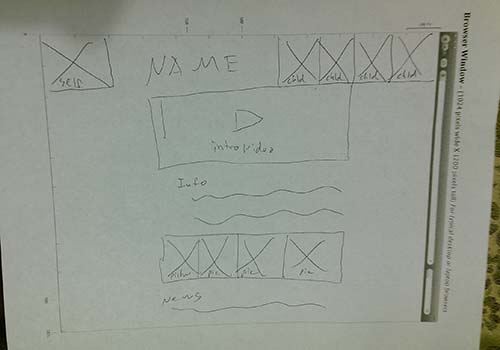 Browser Window - (1024 pixels wide X 1200 pixels tall) For typical desktop or laptop browsers
self
NAME
child child child child
intro video
Info
pictur pic pic pic
News